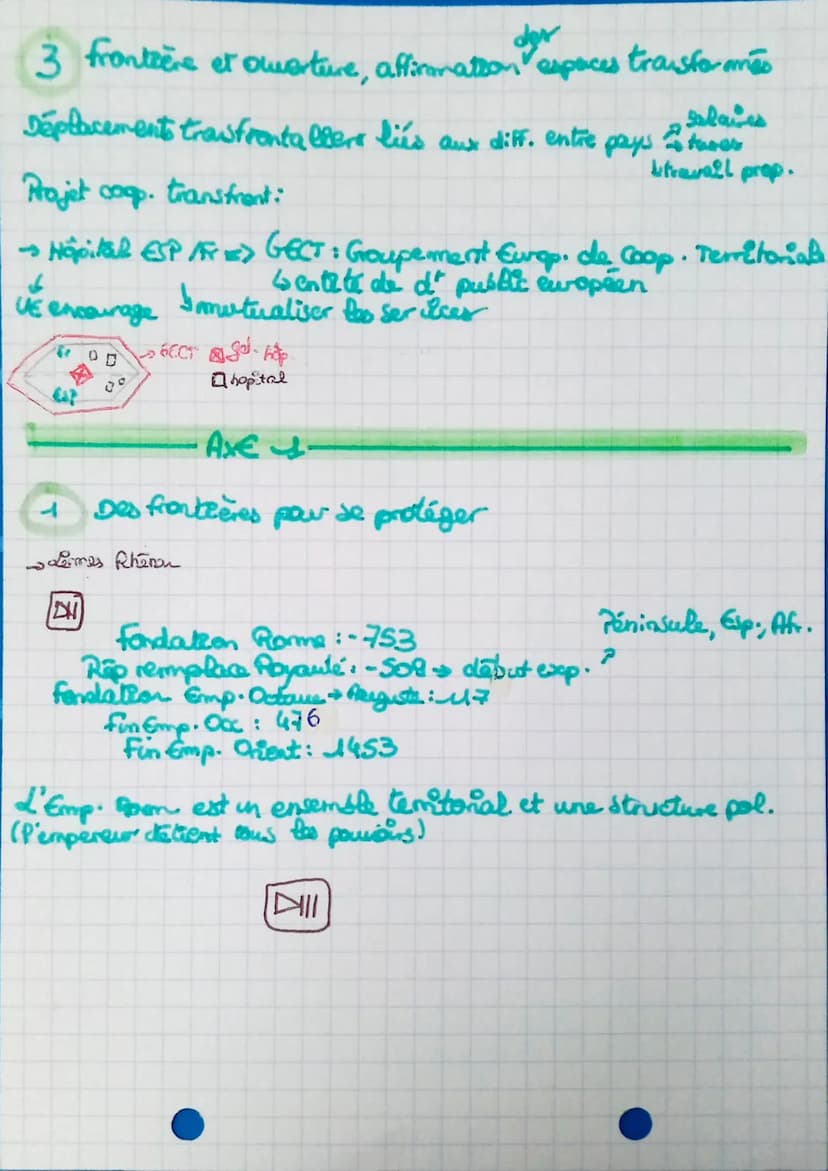 3 frontière et ouverture, affirmation des espaces transformés
Déplacements transfrontaliers liés aux diff. entre pays → salaires
→ taxes
↳ travail prop.
Projet coop. transfront :
→ Hôpital ESP/Fr => GECT : Groupement Europ. de Coop. Territoriale
↳ entité de dt public européen
UE encourage ↳ mutualiser les services
Fr
→ GECT
hôp
Esp
hopital
AXE 1
1 Des frontières pour se protéger
→ Limes Rhénan
Fondation Rome : -753
Péninsule, Esp., Afr.
Rép remplace Royauté : -509 → début exp. ↗
Fondation Emp. Octave → Auguste : -27
fin Emp. Occ : 476
Fin Emp. Orient : 1453
L'Emp. Rom est un ensemble territorial et une structure pol.
(l'empereur détient tous les pouvoirs)